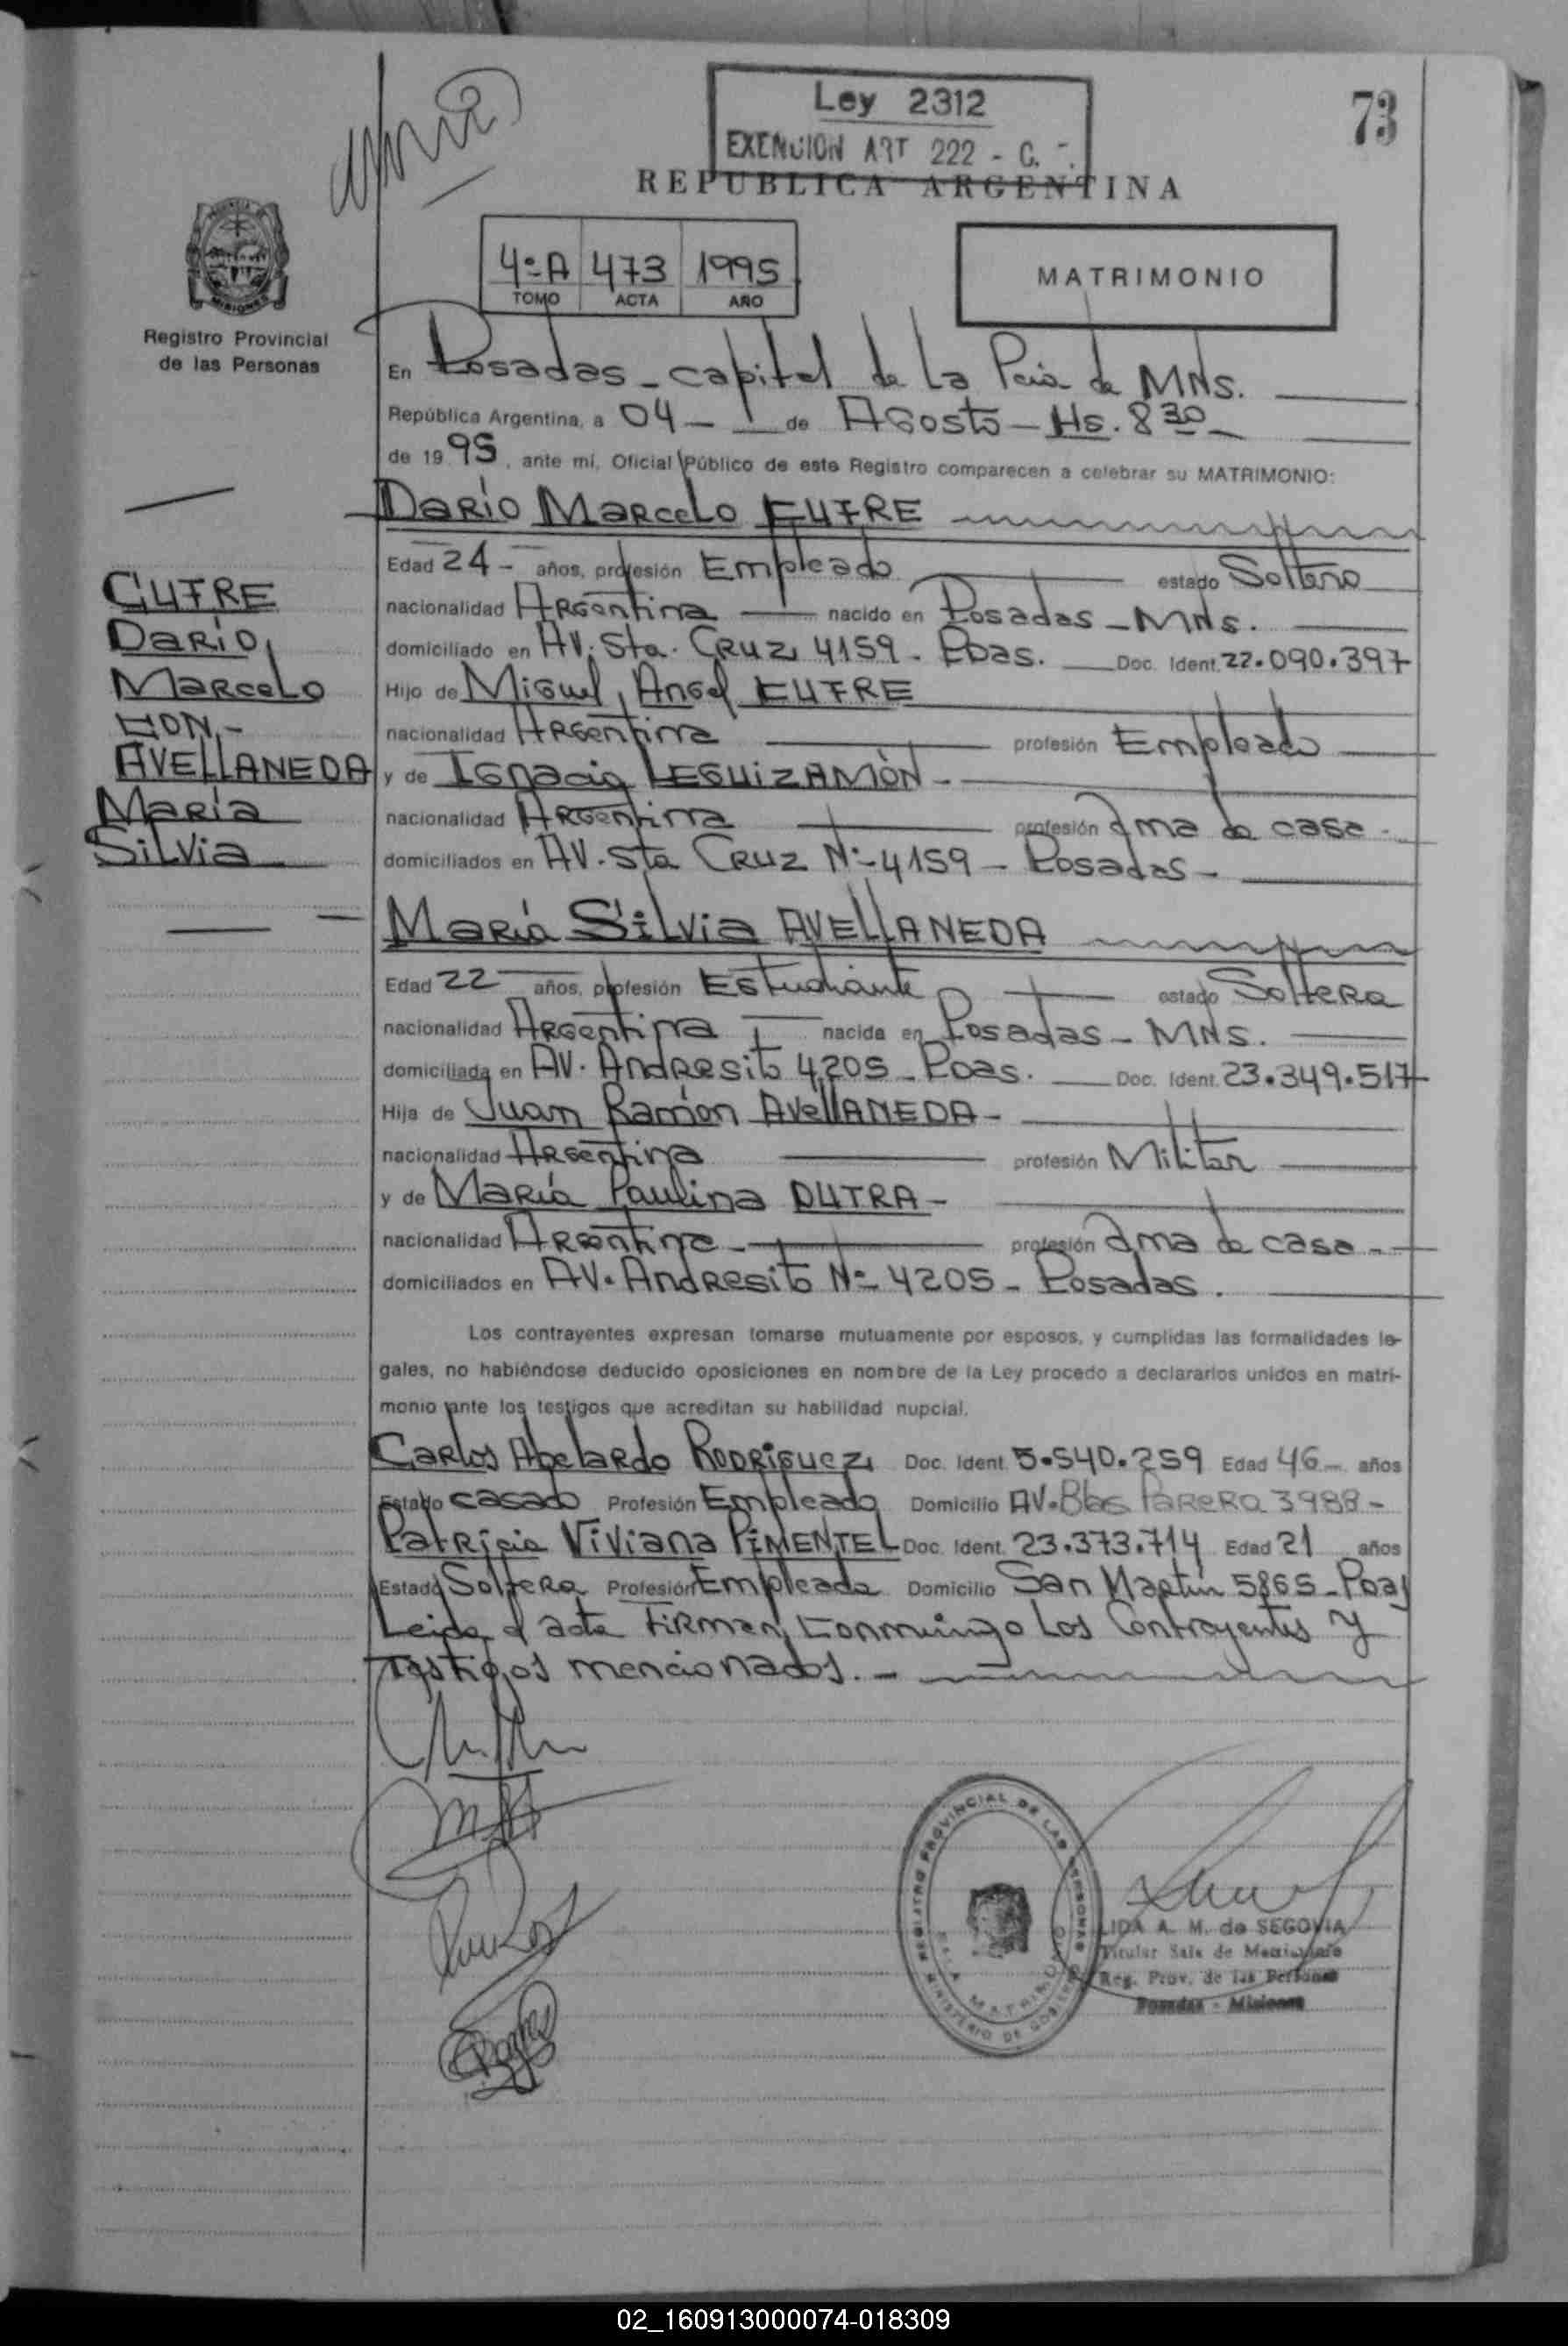 73
Ley 2312
EXENCION ART 222 - C.
REPUBLICA ARGENTINA
PROVINCIA DE MISIONES
Registro Provincial
de las Personas
4º A 473 1995
TOMO ACTA AÑO
MATRIMONIO
En Posadas - capital de La Pcia de MNS.
República Argentina, a 04 - de AGosto - Hs. 8 30 -
de 19 95, ante mí, Oficial Público de este Registro comparecen a celebrar su MATRIMONIO:
DaRío MaRceLo CUFRE
Edad 24 - años, profesión Empleado estado Soltero
nacionalidad ARGentina nacido en Posadas - MNs.
domiciliado en AV. Sta. CRUZ 4159 - Pdas. Doc. Ident. 22.090.397
Hijo de Miguel Angel CUFRE
nacionalidad ARGentina profesión Empleado
y de IGnacia LEGUIZAMÓN -
nacionalidad ARGentina profesión Ama de casa -
domiciliados en AV. Sta CRUZ Nº 4159 - Posadas -
CUFRE
DaRío
MaRceLo
CON -
AVELLANEDA
MaRía
SiLVia
MaRía SiLVia AVELLANEDA
Edad 22 años, profesión Estudiante estado SolteRa
nacionalidad ARGentina nacida en Posadas - MNS.
domiciliada en AV. AndResito 4205 - Pdas. Doc. Ident. 23.349.517
Hija de Juan Ramón AVeLLANEDA -
nacionalidad ARGentina profesión Militar
y de MaRía Paulina DUTRA -
nacionalidad ARGentina - profesión Ama de casa -
domiciliados en AV. AndResito Nº 4205 - Posadas.
Los contrayentes expresan tomarse mutuamente por esposos, y cumplidas las formalidades le-
gales, no habiéndose deducido oposiciones en nombre de la Ley procedo a declararlos unidos en matri-
monio ante los testigos que acreditan su habilidad nupcial.
CaRLos AbeLaRdo RODRIGUEZ Doc. Ident. 5.540.259 Edad 46 - años
Estado casado Profesión Empleado Domicilio AV. Blas PaReRa 3988 -
PatRicia ViViana PiMENTEL Doc. Ident. 23.373.714 Edad 21 años
Estado SolteRa Profesión Empleada Domicilio San Martín 5865 - Pdas
Leida el acta FiRman Conmigo Los Contrayentes y
Testigos mencionados. -
REGISTRO PROVINCIAL DE LAS PERSONAS
SALA MATRIMONIO
MINISTERIO DE GOBIERNO
LIDA A. M. de SEGOVIA
Titular Sala de Matrimonio
Reg. Prov. de las Personas
Posadas - Misiones
02_160913000074-018309